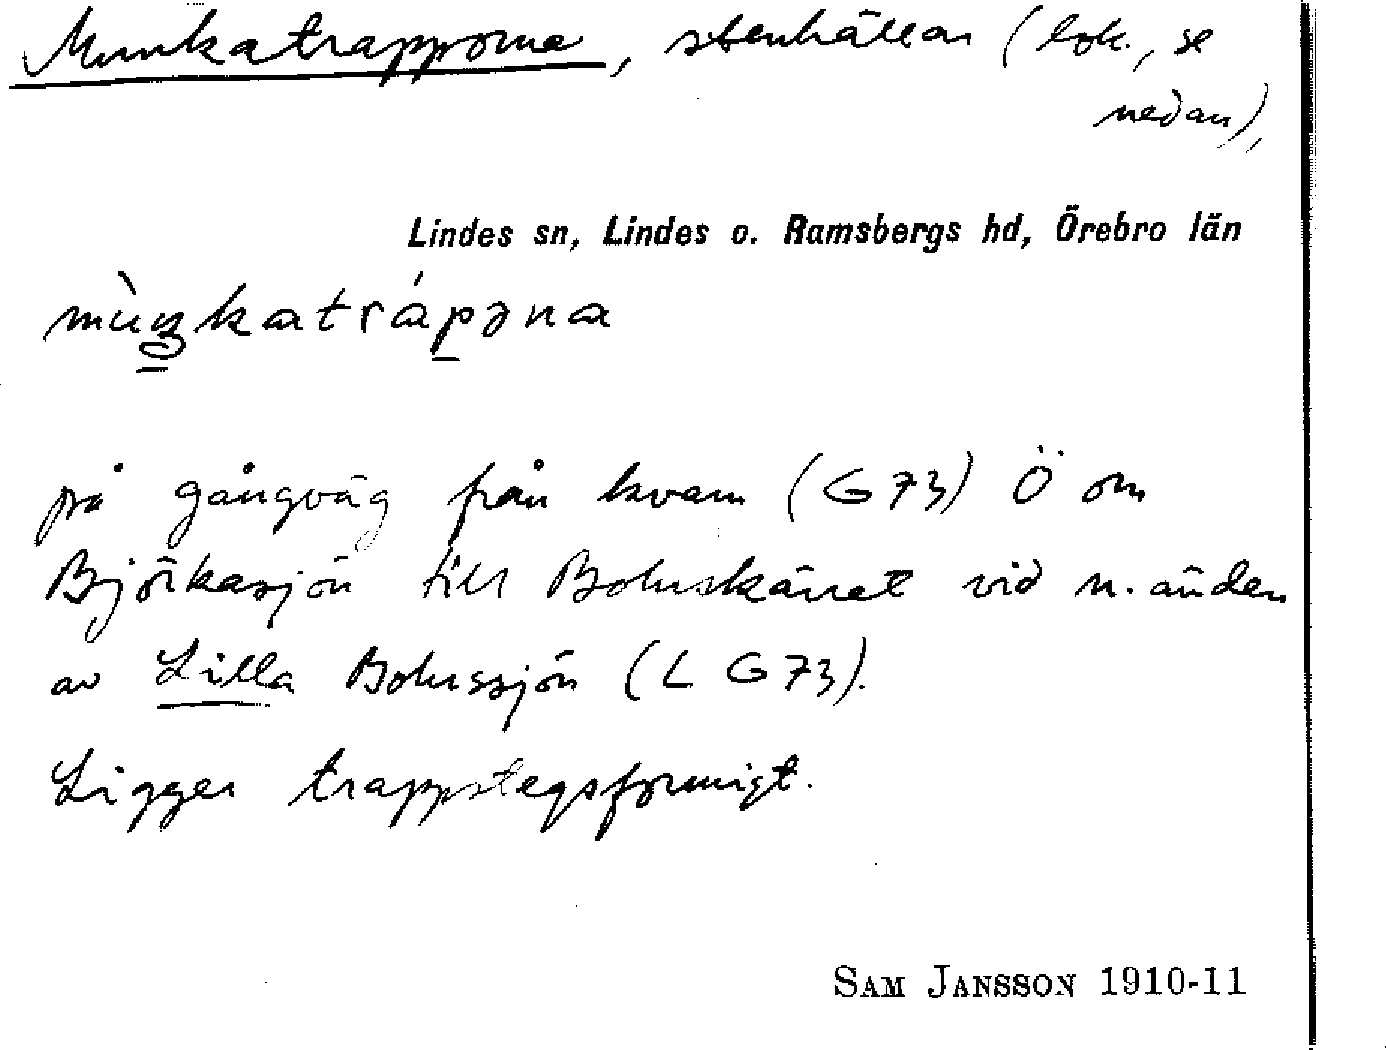 Munkatrapporna, stenhällar (lok., se
nedan),
Lindes sn, Lindes o. Ramsbergs hd, Örebro län
mùŋkatrápəna
på gångväg från kvarn (G73) Ö om
Björkasjön till Boluskärret vid n. änden
av Lilla Bolussjön (L G73).
Ligger trappstegsformigt.
SAM JANSSON 1910-11